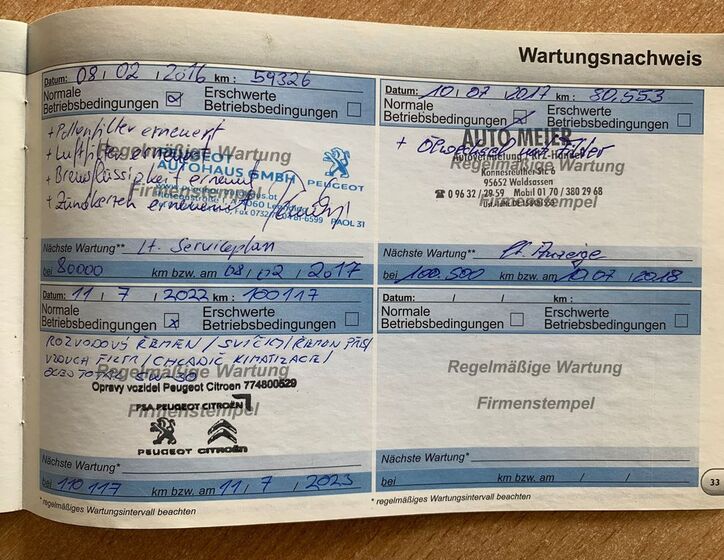 Wartungsnachweis
Datum: 08 / 02 / 2016 km : 59326
Normale Betriebsbedingungen ☒ Erschwerte Betriebsbedingungen ☐
+ Pollenfilter erneuert
+ Luftfilter erneuert
+ Bremsflüssigkeit erneuert
+ Zündkerzen erneuert
Regelmäßige Wartung
Firmenstempel
PEUGEOT
AUTOHAUS GMBH
PEUGEOT
Nächste Wartung** Lt. Serviceplan
bei 80000 km bzw. am 08 / 02 / 2017
Datum: 10 / 07 / 2017 km : 80.553
Normale Betriebsbedingungen ☒ Erschwerte Betriebsbedingungen ☐
+ Ölwechsel mit Filter
Regelmäßige Wartung
Firmenstempel
AUTO MEIER
Konnersreuther Str. 6
95652 Waldsassen
Mobil 01 70 / 380 29 68
Nächste Wartung** lt. Anzeige
bei 100.500 km bzw. am 10 / 07 / 2018
Datum: 11 / 7 / 2022 km : 100117
Normale Betriebsbedingungen ☒ Erschwerte Betriebsbedingungen ☐
ROZVODOVÝ ŘEMEN / SVÍČKY / ŘEMEN
FILTR / CHLADIČ KLIMATIZACE /
TOTAL 5W-30
Regelmäßige Wartung
Opravy vozidel Peugeot Citroen 774800529
Firmenstempel
PSA PEUGEOT CITROËN
PEUGEOT CITROËN
Nächste Wartung*
bei 110 117 km bzw. am 11 / 7 / 2023
* regelmäßiges Wartungsintervall beachten
Datum: / / km :
Normale Betriebsbedingungen ☐ Erschwerte Betriebsbedingungen ☐
Regelmäßige Wartung
Firmenstempel
Nächste Wartung*
bei km bzw. am / /
* regelmäßiges Wartungsintervall beachten
33